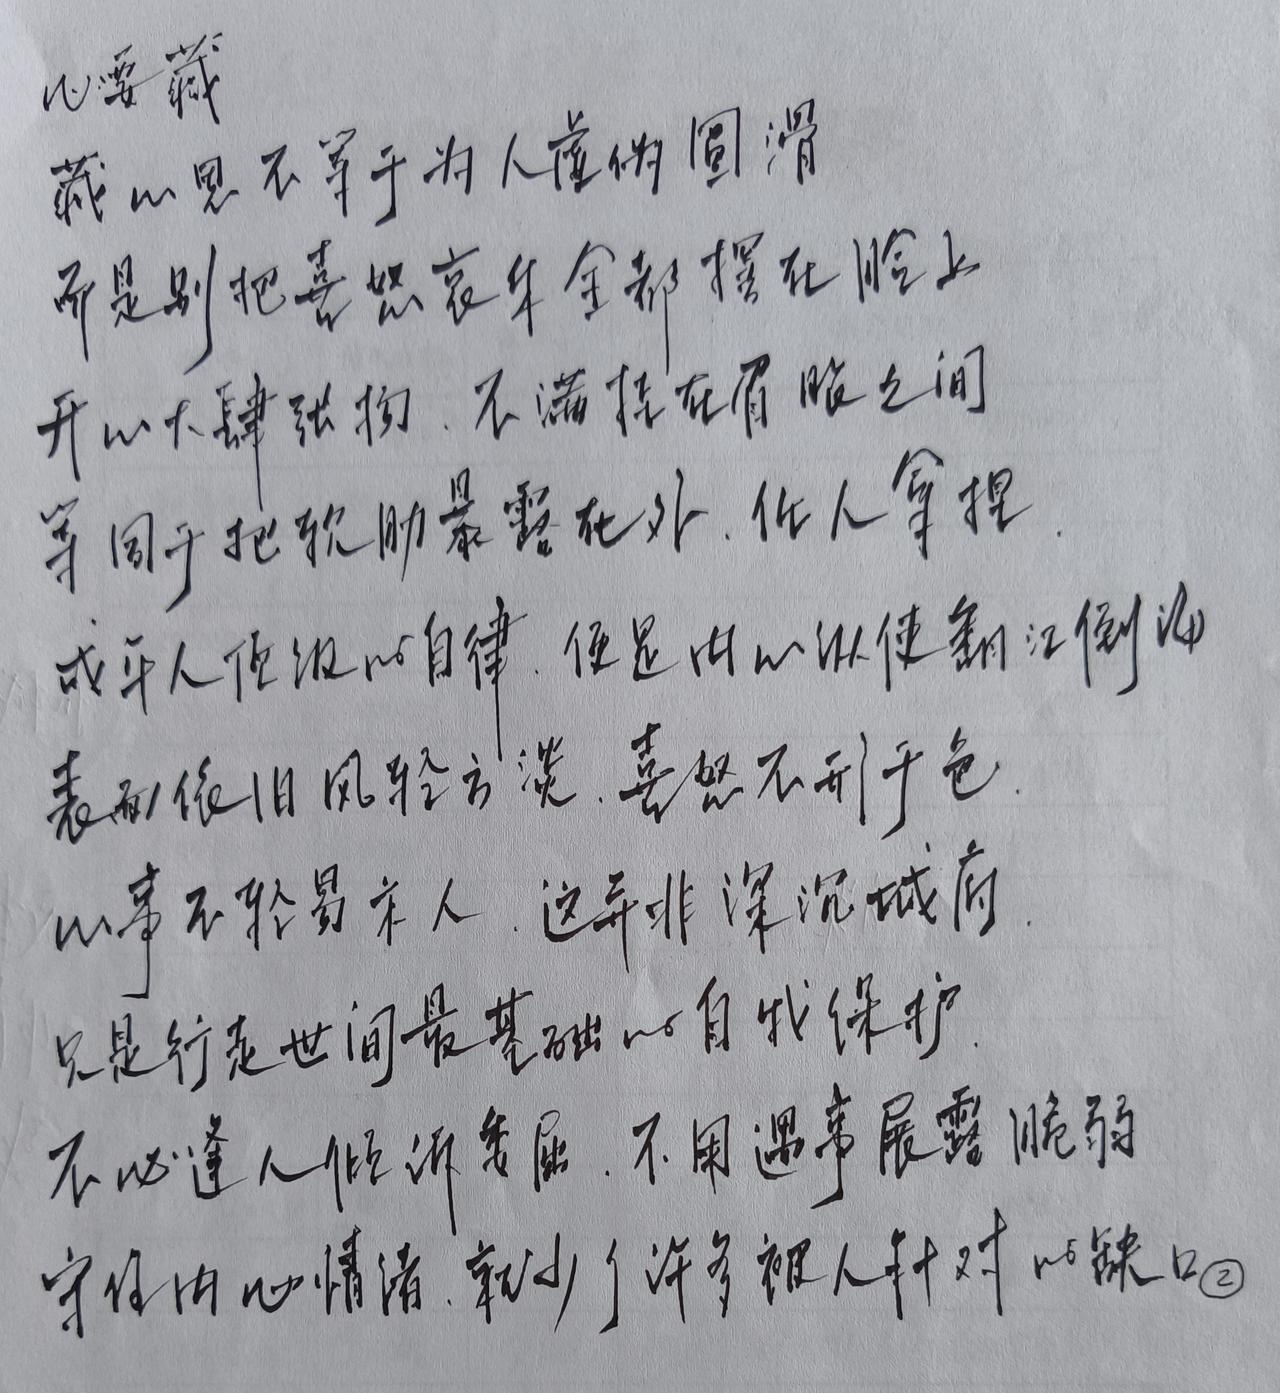 心要藏
藏心思不等于为人虚伪圆滑
而是别把喜怒哀乐全都摆在脸上
开心大肆张扬.不满挂在眉眼之间
等同于把软肋暴露在外.任人拿捏.
成年人顶级的自律.便是内心纵使翻江倒海
表面依旧风轻云淡.喜怒不形于色.
心事不轻易示人.这并非深沉城府.
只是行走世间最基础的自我保护.
不必逢人倾诉委屈.不用遇事展露脆弱
守住内心情绪.就少了许多被人针对的缺口②